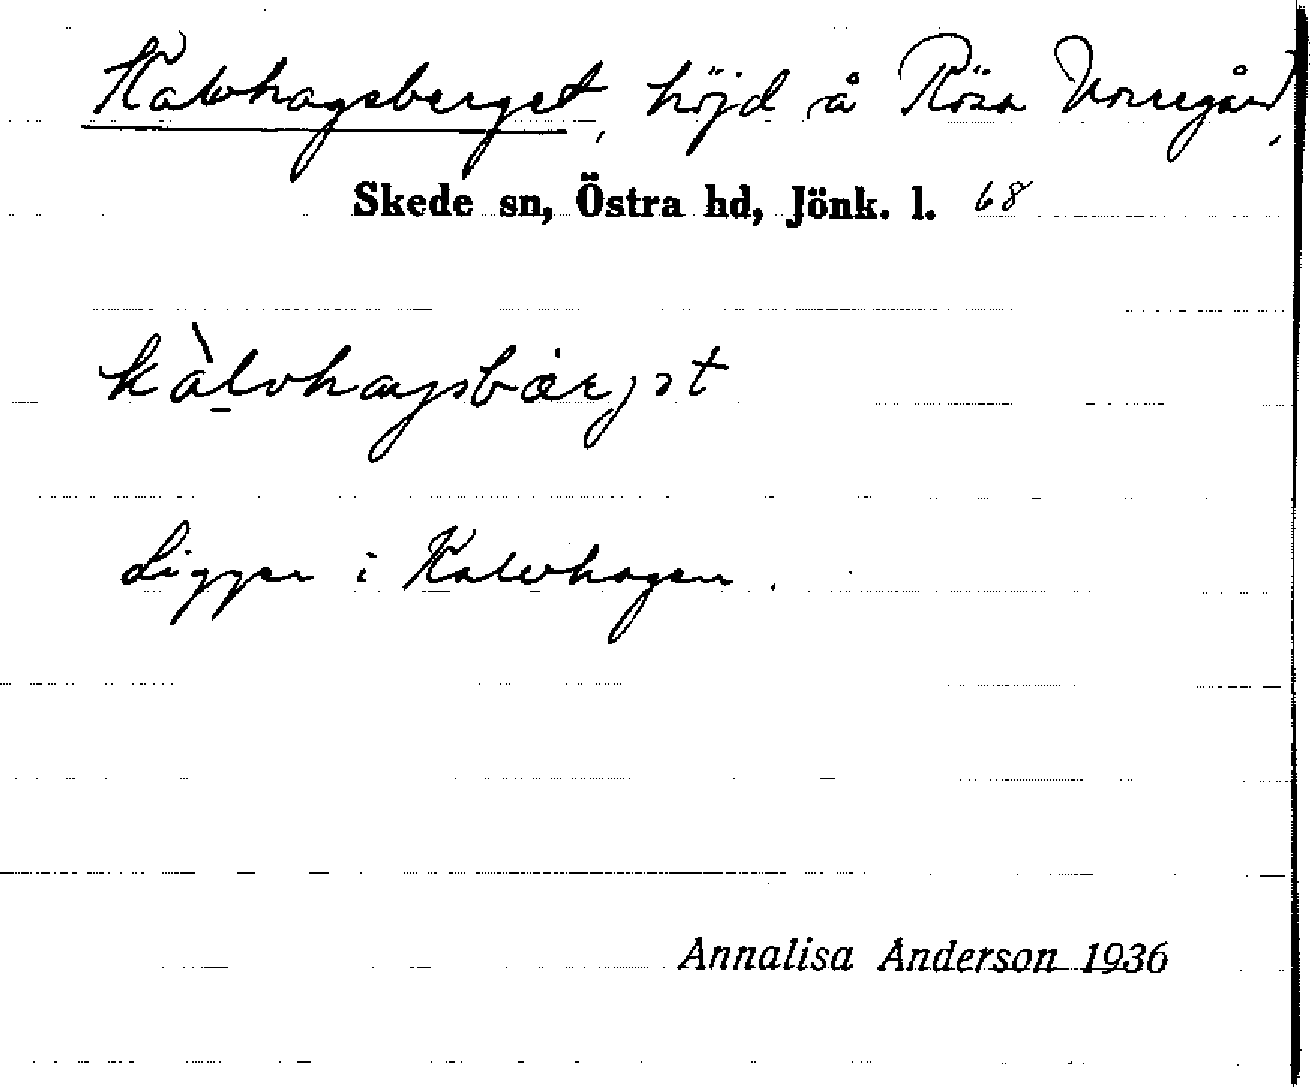 Kalvhagsberget, höjd å Rösa Norregård,
Skede sn, Östra hd, Jönk. l. 68
kàlvhagsbærjət
Ligger i Kalvhagen.
Annalisa Anderson 1936